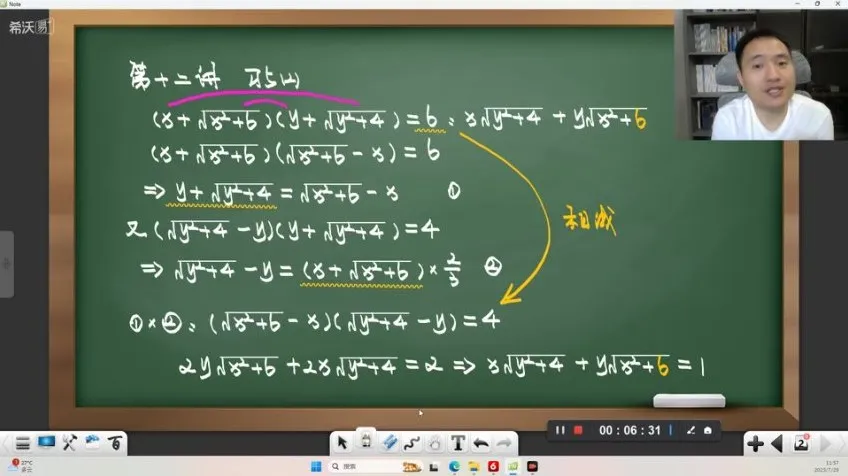 Note
希沃
第十二讲 巧凸凹
(x+√x²+6)(y+√y²+4)=6, x√y²+4 + y√x²+6
(x+√x²+6)(√x²+6-x)=6
⇒ y+√y²+4=√x²+6-x ①
又(√y²+4-y)(y+√y²+4)=4
⇒ √y²+4-y=(x+√x²+6)×2/3 ②
相减
①×②: (√x²+6-x)(√y²+4-y)=4
2y√x²+6+2x√y²+4=2⇒x√y²+4+y√x²+6=1
00:06:31
T
2
27°C
多云
搜索
11:57
2023/7/29